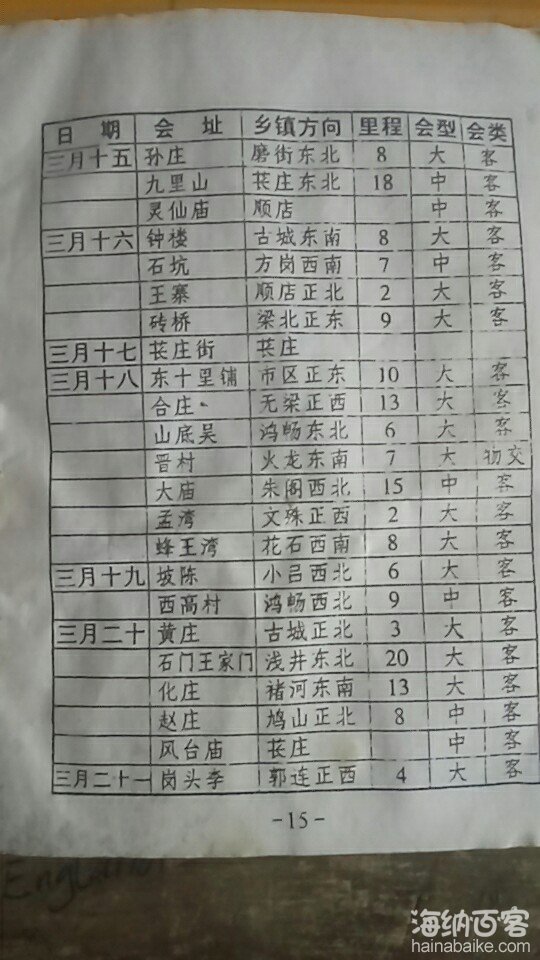 日 期 会 址 乡镇方向 里程 会型 会类
三月十五 孙庄 磨街东北 8 大 客
九里山 苌庄东北 18 中 客
灵仙庙 顺店 中 客
三月十六 钟楼 古城东南 8 大 客
石坑 方岗西南 7 中 客
王寨 顺店正北 2 大 客
砖桥 梁北正东 9 大 客
三月十七 苌庄街 苌庄
三月十八 东十里铺 市区正东 10 大 客
合庄 无梁正西 13 大 客
山底吴 鸿畅东北 6 大 客
晋村 火龙东南 7 大 物交
大庙 朱阁西北 15 中 客
孟湾 文殊正西 2 大 客
蜂王湾 花石西南 8 大 客
三月十九 坡陈 小吕西北 6 大 客
西高村 鸿畅西北 9 中 客
三月二十 黄庄 古城正北 3 大 客
石门王家门 浅井东北 20 大 客
化庄 褚河东南 13 大 客
赵庄 鸠山正北 8 中 客
风台庙 苌庄 中 客
三月二十一 岗头李 郭连正西 4 大 客
-15-
海纳百客
hainabaike.com